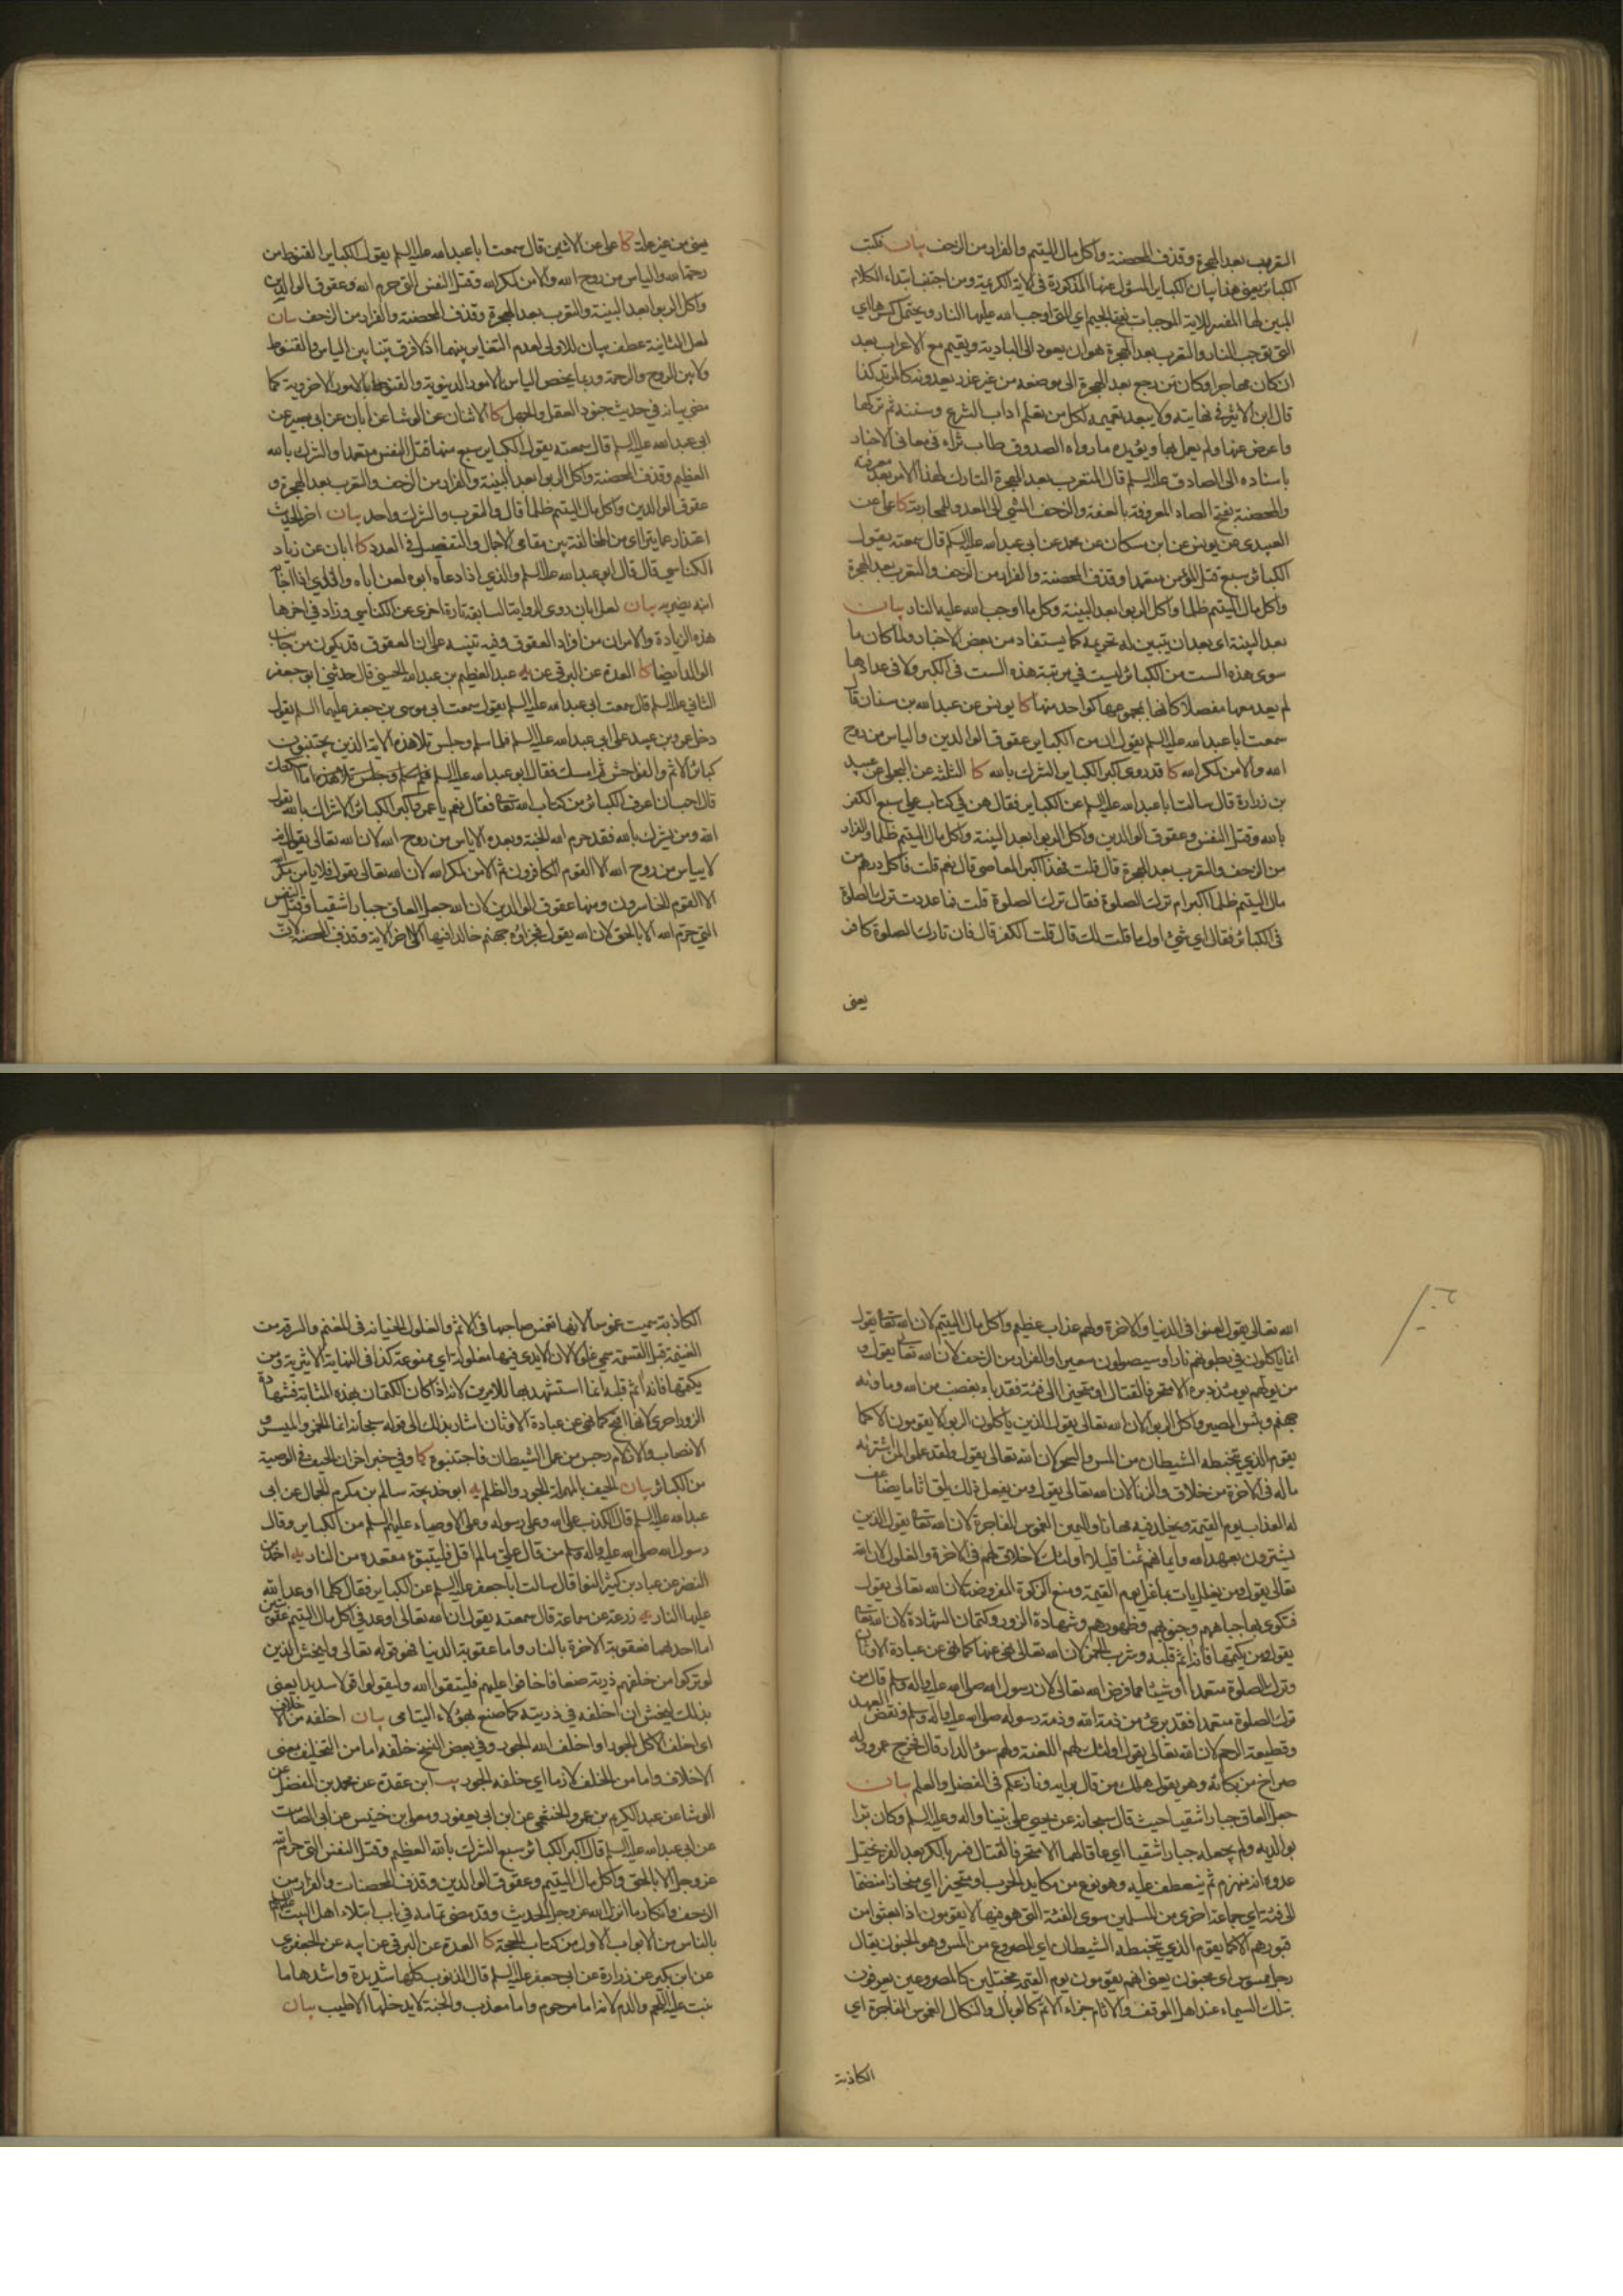 التعرب بعد الهجرة وقذف المحصنة واكل مال اليتيم والفرار من الزحف بيان فكتب
الكبائر يعني هذا بيان الكباير المسؤل عنها المذكورة في الاية الكريمة ومن اجتنب ابتداء الكلام
المبين لها المفسر للاية الموجبات بفتح الجيم اي التي اوجب الله عليها النار ويحتمل كسرها اي
التي توجب النار والتعرب بعد الهجرة هو ان يعود الى البادية ويقيم مع الاعراب بعد
ان كان مهاجرا وكان من رجع بعد الهجرة الى موضعه من غير عذر يعدونه كالمرتد كذا
قال ابن الاثير في نهايته ولا يبعد تعميمه لكل من تعلم اداب الشرع وسننه ثم تركها
واعرض عنها ولم يعمل بها ويؤيده ما رواه الصدوق طاب ثراه في معاني الاخبار
باسناده الى الصادق عليه السلم قال المتعرب بعد الهجرة التارك لهذا الامر بعد معرفته
والمحصنة بفتح الصاد المعروفة بالعفة والزحف المشي الى العدو للمحاربة كا علي عن
العبيدي عن يونس عن ابن مسكان عن محمد عن ابي عبد الله عليه السلم قال سمعته يقول
الكبائر سبع قتل المؤمن متعمدا وقذف المحصنة والفرار من الزحف والتعرب بعد الهجرة
واكل مال اليتيم ظلما واكل الربوا بعد البينة وكل ما اوجب الله عليه النار بيان
بعد البينة اي بعد ان يتبين له تحريمه كما يستفاد من بعض الاخبار ولما كان ما
سوى هذه الست من الكبائر ليست في مرتبة هذه الست في الكبر ولا في عدادها
لم يعد معها مفصلا كانها بمجموعها كواحد منها كا يونس عن عبد الله بن سنان قال
سمعت ابا عبد الله عليه السلم يقول ان من الكباير عقوق الوالدين والياس من روح
الله والامن لمكر الله كا قد روي اكبر الكباير الشرك بالله كا الثلثة عن البجلي عن عبيد
بن زرارة قال سالت ابا عبد الله عليه السلم عن الكباير فقال هن في كتاب علي سبع الكفر
بالله وقتل النفس وعقوق الوالدين واكل الربوا بعد البينة واكل مال اليتيم ظلما والفرار
من الزحف والتعرب بعد الهجرة قال قلت فهذا اكبر المعاصي قال نعم قلت فاكل درهم من
مال اليتيم ظلما اكبر ام ترك الصلوة فقال ترك الصلوة قلت فما عددت ترك الصلوة
في الكبائر فقال اي شئ اول ما قلت لك قال قلت الكفر قال فان تارك الصلوة كافر
يعني
يعني من غير علة كا علي عن الاثنين قال سمعت ابا عبد الله عليه السلم يقول الكباير القنوط من
رحمة الله والياس من روح الله والامن لمكر الله وقتل النفس التي حرم الله وعقوق الوالدين
واكل الربوا بعد البينة والتعرب بعد الهجرة وقذف المحصنة والفرار من الزحف بيان
لعل الثانية عطف بيان للاولى لعدم التغاير بينهما اذ لا فرق بينا بين الياس والقنوط
ولا بين الروح والرحمة وربما يخص الياس بالامور الدنيوية والقنوط بالامور الاخروية كما
مضى بيانه في حديث جنود العقل والجهل كا الاثنان عن الوشا عن ابان عن ابي بصير عن
ابي عبد الله عليه السلم قال سمعته يقول الكباير سبع منها قتل النفس متعمدا والشرك بالله
العظيم وقذف المحصنة واكل الربوا بعد البينة والفرار من الزحف والتعرب بعد الهجرة و
عقوق الوالدين واكل مال اليتيم ظلما قال والتعرب والشرك واحد بيان اخر الحديث
اعتذار عما يترااى من المخالفة بين مقامي الاجمال والتفصيل في العدد كا ابان عن زياد
الكناسي قال قال ابو عبد الله عليه السلم والذي اذا دعاه ابوه لعن اباه والذي اذا اجابه
ابنه يضربه بيان لعل ابان روى الرواية السابقة تارة اخرى عن الكناسي وزاد في اخرها
هذه الزيادة والامران من افراد العقوق وفيه تنبيه على ان العقوق قد يكون من جانب
الوالد ايضا كا العدة عن البرقي عن يه عبد العظيم بن عبد الله الحسني قال حدثني ابو جعفر
الثاني عليه السلم قال سمعت ابي عبد الله عليه السلم يقول سمعت ابي موسى بن جعفر عليهما السلم يقول
دخل عمرو بن عبيد على ابي عبد الله عليه السلم فلما سلم وجلس تلا هذه الاية الذين يجتنبون
كبائر الاثم والفواحش ثم امسك فقال ابو عبد الله عليه السلم فلم سلم وجلس تلا هذه ما اسكتك
قال احب ان اعرف الكبائر من كتاب الله تعالى فقال نعم يا عمرو اكبر الكبائر الاشراك بالله يقول
الله ومن يشرك بالله فقد حرم الله الجنة وبعده الاياس من روح الله لان الله تعالى يقول انه
لا ييأس من روح الله الا القوم الكافرون ثم الامن لمكر الله لان الله تعالى يقول فلا يامن مكر
الا القوم الخاسرون ومنها عقوق الوالدين لان الله جعل العاق جبارا شقيا وقتل النفس
التي حرم الله الا بالحق لان الله يقول فجزاؤه جهنم خالدا فيها الى اخر الاية وقذف المحصنة لان
الله تعالى يقول لعنوا في الدنيا والاخرة ولهم عذاب عظيم واكل مال اليتيم لان الله تعالى يقول
انما ياكلون في بطونهم نارا وسيصلون سعيرا والفرار من الزحف لان الله تعالى يقول و
من يولهم يومئذ دبره الا متحرفا لقتال او متحيزا الى فئة فقد باء بغضب من الله وماواه
جهنم وبئس المصير واكل الربوا لان الله تعالى يقول الذين ياكلون الربوا لا يقومون الا كما
يقوم الذي يتخبطه الشيطان من المس والسحر لان الله تعالى يقول ولقد علموا لمن اشتراه
ماله في الاخرة من خلاق والزنا لان الله تعالى يقول ومن يفعل ذلك يلق اثاما يضاعف
له العذاب يوم القيمة ويخلد فيه مهانا واليمين الغموس الفاجرة لان الله تعالى يقول الذين
يشترون بعهد الله وايمانهم ثمنا قليلا اولئك لا خلاق لهم في الاخرة والغلول لان الله
تعالى يقول ومن يغلل يات بما غل يوم القيمة ومنع الزكوة المفروضة لان الله تعالى يقول
فتكوى بها جباههم وجنوبهم وظهورهم وشهادة الزور وكتمان الشهادة لان الله تعالى
يقول ومن يكتمها فانه اثم قلبه وشرب الخمر لان الله تعالى نهى عنها كما نهى عن عبادة الاوثان
وترك الصلوة متعمدا او شيئا مما فرض الله تعالى لان رسول الله صلى الله عليه واله وسلم قال من
ترك الصلوة متعمدا فقد برئ من ذمة الله وذمة رسوله صلى الله عليه واله وسلم ونقض العهد
وقطيعة الرحم لان الله تعالى يقول اولئك لهم اللعنة ولهم سوء الدار قال فخرج عمرو وله
صراخ من بكائه وهو يقول هلك من قال برايه ونازعكم في الفضل والعلم بيان
جعل العاق جبارا شقيا حيث قال سبحانه عن يحيى على نبينا واله وعليه السلم وكان برا
بوالديه ولم يجعله جبارا شقيا اي عاقا لهما الا متحرفا لقتال فسر بالكر بعد الفر يخيل
عدوه انه منهزم ثم ينعطف عليه وهو نوع من مكايد الحرب او متحيزا اي منحازا منضما
الى فئة اي جماعة اخرى من المسلمين سوى الفئة التي هو فيها لا يقومون اذا بعثوا من
قبورهم الا كما يقوم الذي يتخبطه الشيطان اي المصروع من المس وهو الجنون يقال
رجل ممسوس اي مجنون يعني انهم يقومون يوم القيمة مختبلين كالمصروعين يعرفون
بتلك السيماء عند اهل الموقف والاثام جزاء الاثم كالوبال والنكال الغموس الفاجرة اي
الكاذبة
الكاذبة سميت غموسا لانها تغمس صاحبها في الاثم والغلول الخيانة في المغنم والسرقة من
الغنيمة قبل القسمة سمي غلولا لان الايدي فيها مغلولة اي ممنوعة كذا في النهاية الاثيرية ومن
يكتمها فانه اثم قلبه انما استشهد بها للامرين لانه اذا كان الكتمان بهذه المثابة فشهادة
الزور احرى كانها اقبح كما نهى عن عبادة الاوثان اشار بذلك الى قوله سبحانه انما الخمر والميسر و
الانصاب والازلام رجس من عمل الشيطان فاجتنبوه كا وفي خبر اخر ان الحيف في الوصية
من الكبائر بيان الحيف بالمهملة الجور والظلم يه ابو خديجة سالم بن مكرم الجمال عن ابي
عبد الله عليه السلم قال الكذب على الله وعلى رسوله وعلى الاوصياء عليهم السلم من الكباير وقال
رسول الله صلى الله عليه واله وسلم من قال علي ما لم اقل فليتبوء مقعده من النار يه احمد بن
النضر عن عباد بن كثير النوا قال سالت ابا جعفر عليه السلم عن الكباير فقال كل ما اوعد الله
عليها النار يه زرعة عن سماعة قال سمعته يقول ان الله تعالى اوعد في اكل مال اليتيم عقوبتين
اما احدهما فعقوبة الاخرة بالنار واما عقوبة الدنيا فهو قوله تعالى وليخش الذين
لو تركوا من خلفهم ذرية ضعافا خافوا عليهم فليتقوا الله وليقولوا قولا سديدا يعني
بذلك ليخش ان اخلفه في ذريته كما صنع بهؤلاء اليتامى بيان اخلفه من الاخلاف
اي اخلف الاكل الجور او اخلف الله الجور وفي بعض النسخ خلفه اما من التخليف بمعنى
الاخلاف واما من الخلف لازما اي خلفه الجور يب ابن عقدة عن محمد بن المفضل عن
الوشا عن عبد الكريم بن عمرو الخثعمي عن ابن ابي يعفور ومعلى بن خنيس عن ابي الصامت
عن ابي عبد الله عليه السلم قال اكبر الكبائر سبع الشرك بالله العظيم وقتل النفس التي حرم الله
عز وجل الا بالحق واكل مال اليتيم وعقوق الوالدين وقذف المحصنات والفرار من
الزحف وانكار ما انزل الله عز وجل الحديث وقد مضى تمامه في باب ابتلاء اهل البيت عليهم السلم
بالناس من الابواب الاول من كتاب الحجة كا العدة عن البرقي عن ابيه عن الجعفري
عن ابن بكير عن زرارة عن ابي جعفر عليه السلم قال الذنوب كلها شديدة واشدها ما
نبت عليه اللحم والدم لانه اما مرحوم واما معذب والجنة لا يدخلها الا طيب بيان